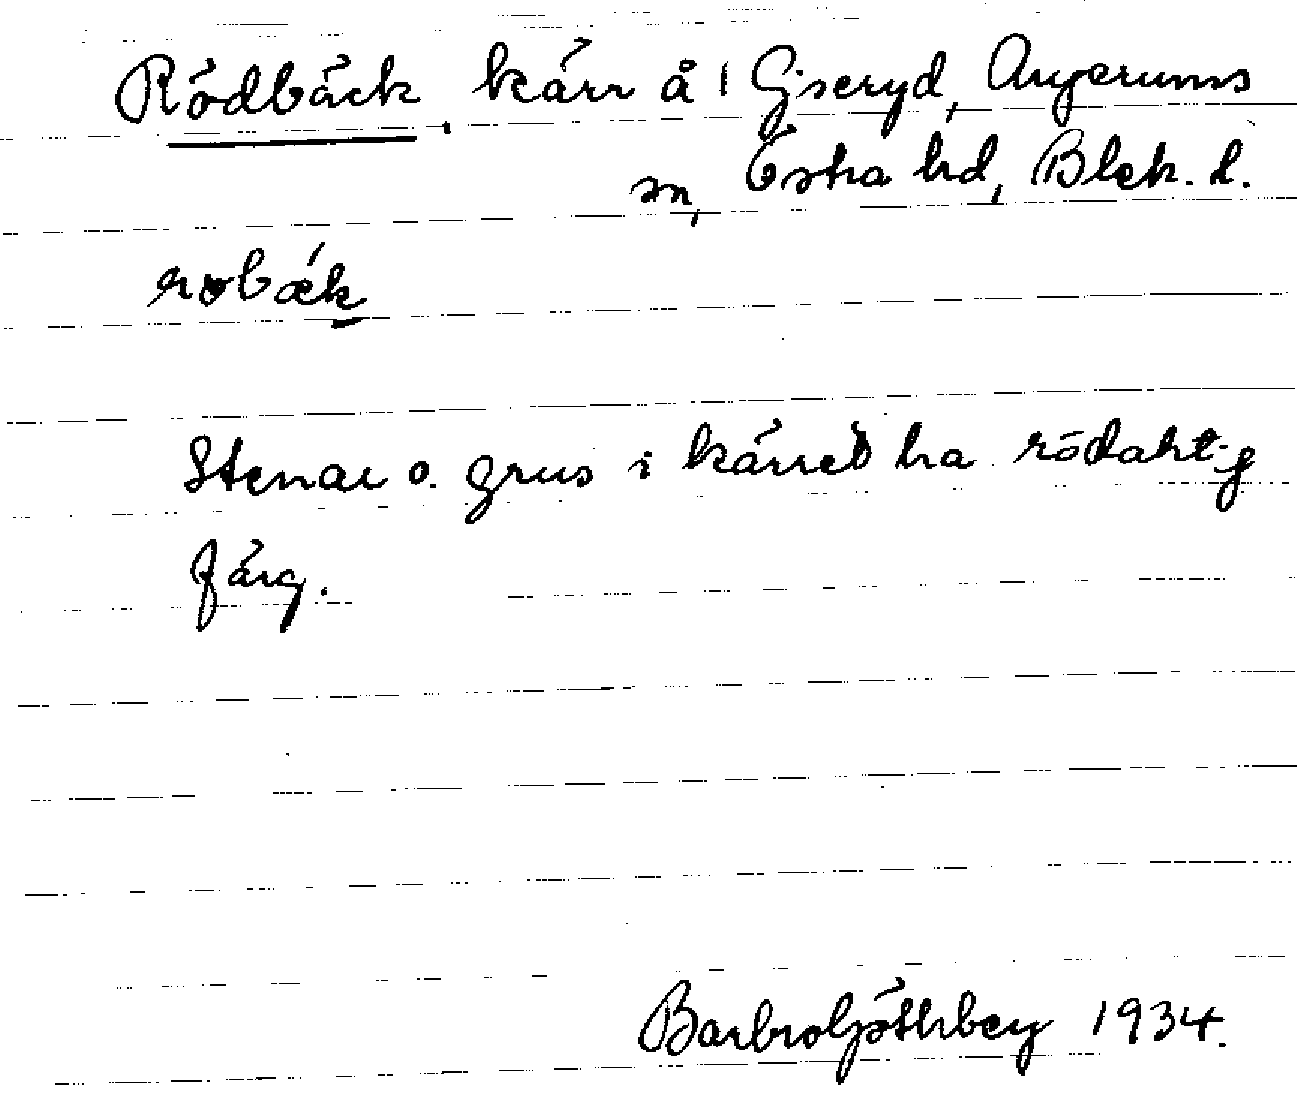 Rödbäck, kärr å 1 Gjseryd, Augerums
sn, Östra hd, Blek. l.
robæ̂k
Stenar o. grus i kärret ha rödaktig
färg.
Barbro Göthberg 1934.